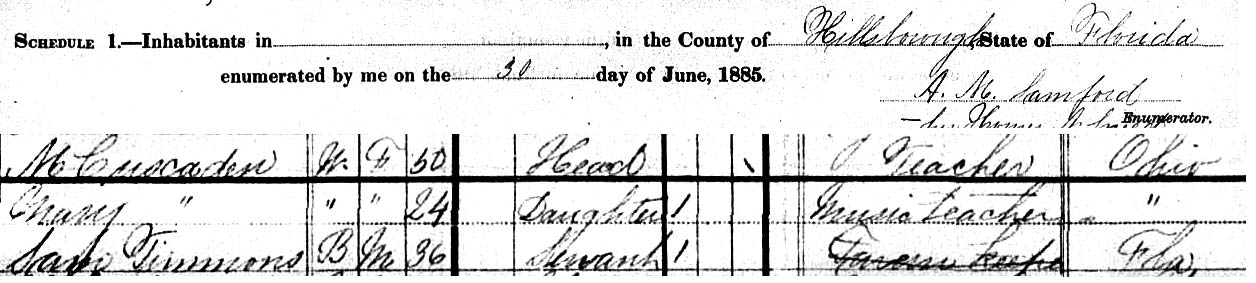 SCHEDULE 1.—Inhabitants in , in the County of Hillsborough, State of Florida
enumerated by me on the 30 day of June, 1885.
A. M. Samford
Enumerator.
M Cuscaden W. F 50 Head \ Teacher Ohio
Mary " " " 24 Daughter 1 Music teacher "
Sam Timmons B M 36 Servant 1 Fla,